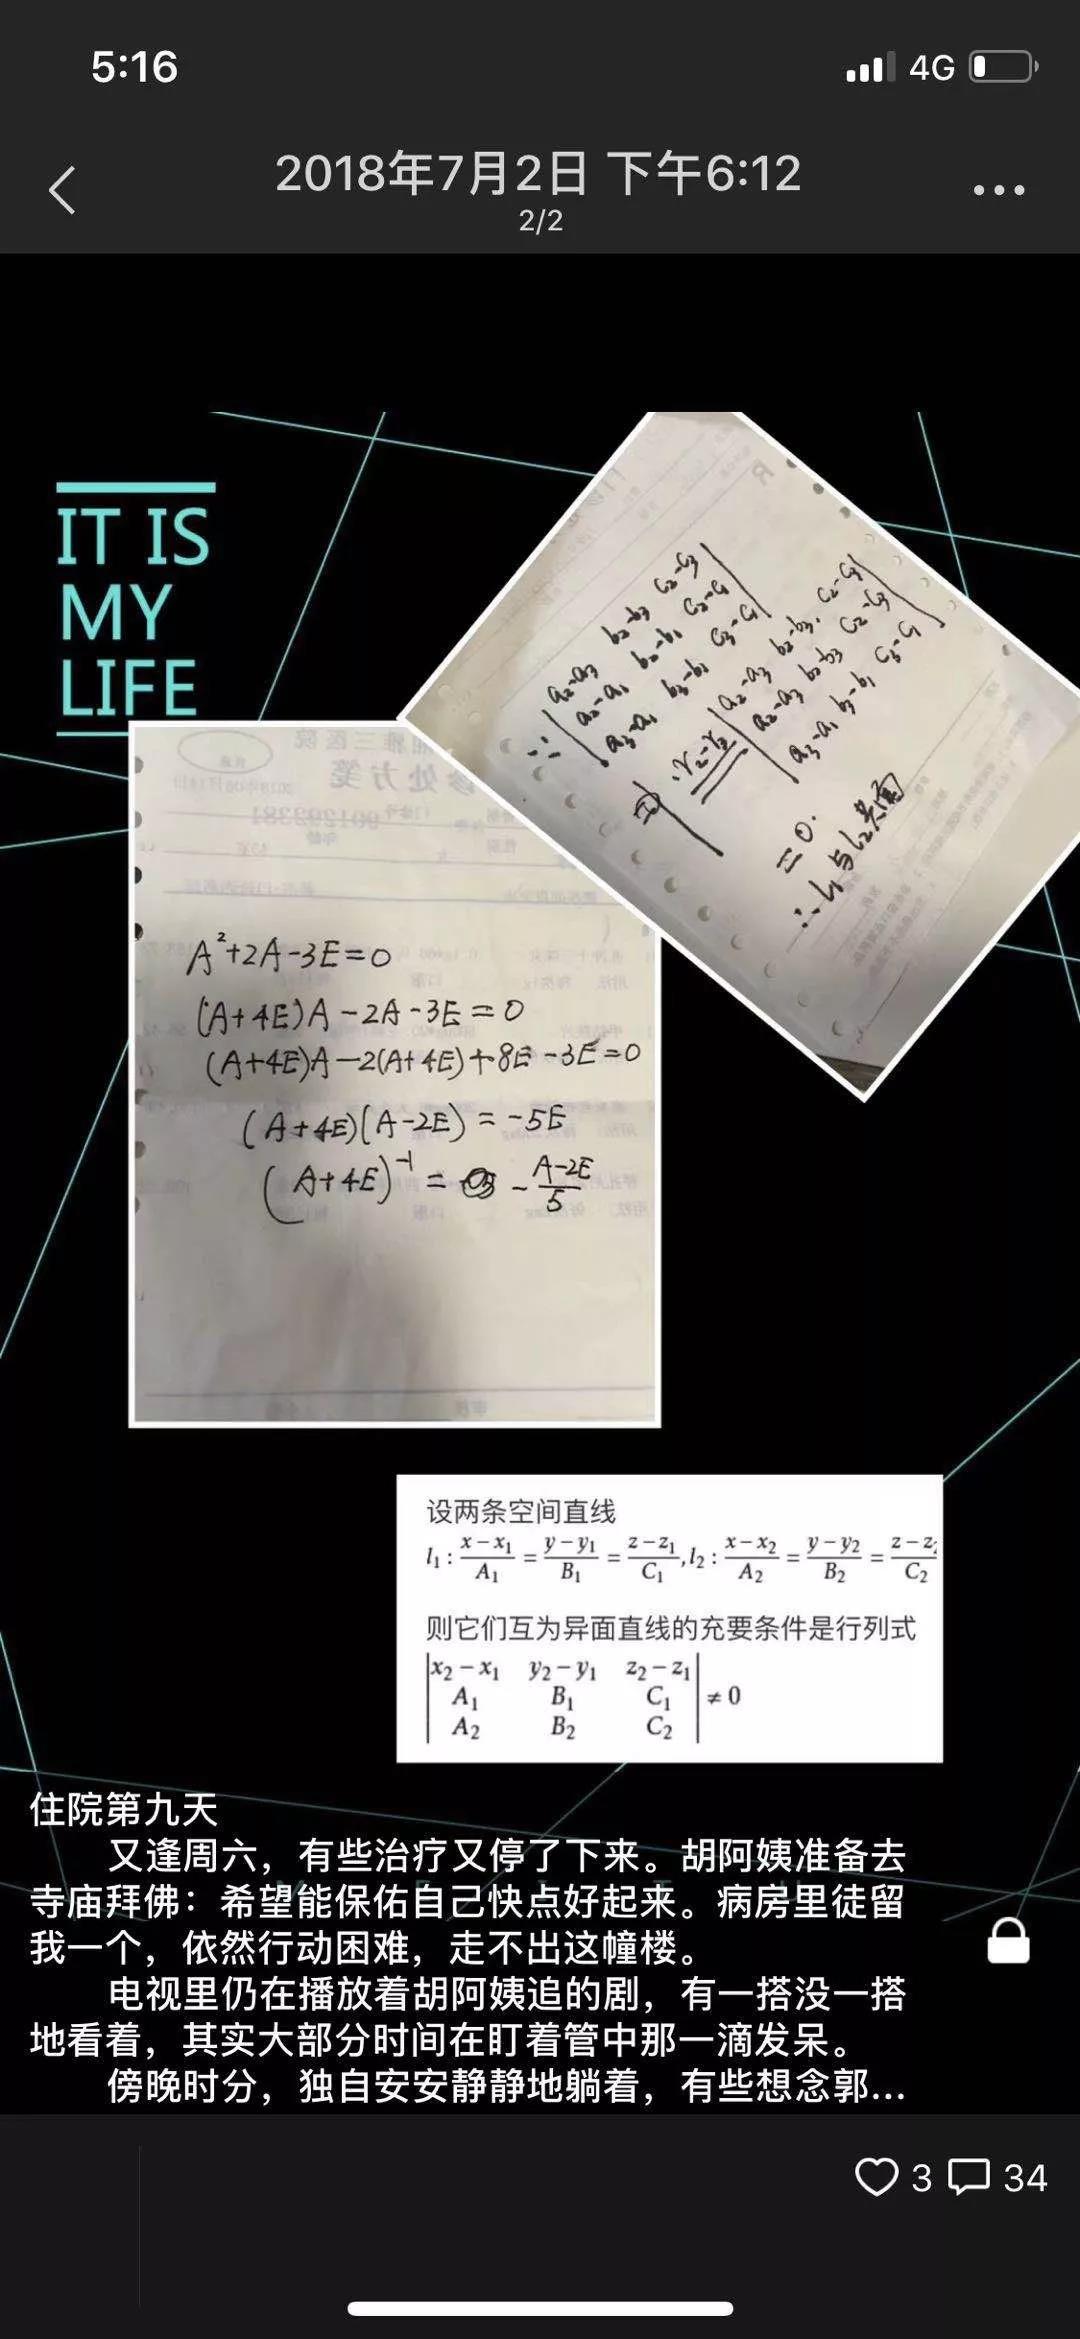 5:16
4G
2018年7月2日 下午6:12
2/2
IT IS
MY
LIFE
∵ | a₂-a₃ b₂-b₃ c₂-c₃ |
| a₂-a₁ b₂-b₁ c₂-c₁ |
| a₃-a₁ b₃-b₁ c₃-c₁ |
r₂-r₃ | a₂-a₃ b₂-b₃ c₂-c₃ |
| a₂-a₃ b₂-b₃ c₂-c₃ |
| a₃-a₁ b₃-b₁ c₃-c₁ |
=0.
∴ l₁与l₂共面
A²+2A-3E=0
(A+4E)A-2A-3E=0
(A+4E)A-2(A+4E)+8E-3E=0
(A+4E)(A-2E)=-5E
(A+4E)⁻¹= - (A-2E)/5
设两条空间直线
l₁: (x-x₁)/A₁ = (y-y₁)/B₁ = (z-z₁)/C₁, l₂: (x-x₂)/A₂ = (y-y₂)/B₂ = (z-z₂)/C₂
则它们互为异面直线的充要条件是行列式
| x₂-x₁ y₂-y₁ z₂-z₁ |
| A₁ B₁ C₁ | ≠0
| A₂ B₂ C₂ |
住院第九天
又逢周六，有些治疗又停了下来。胡阿姨准备去
寺庙拜佛：希望能保佑自己快点好起来。病房里徒留
我一个，依然行动困难，走不出这幢楼。
电视里仍在播放着胡阿姨追的剧，有一搭没一搭
地看着，其实大部分时间在盯着管中那一滴发呆。
傍晚时分，独自安安静静地躺着，有些想念郭...
3
34